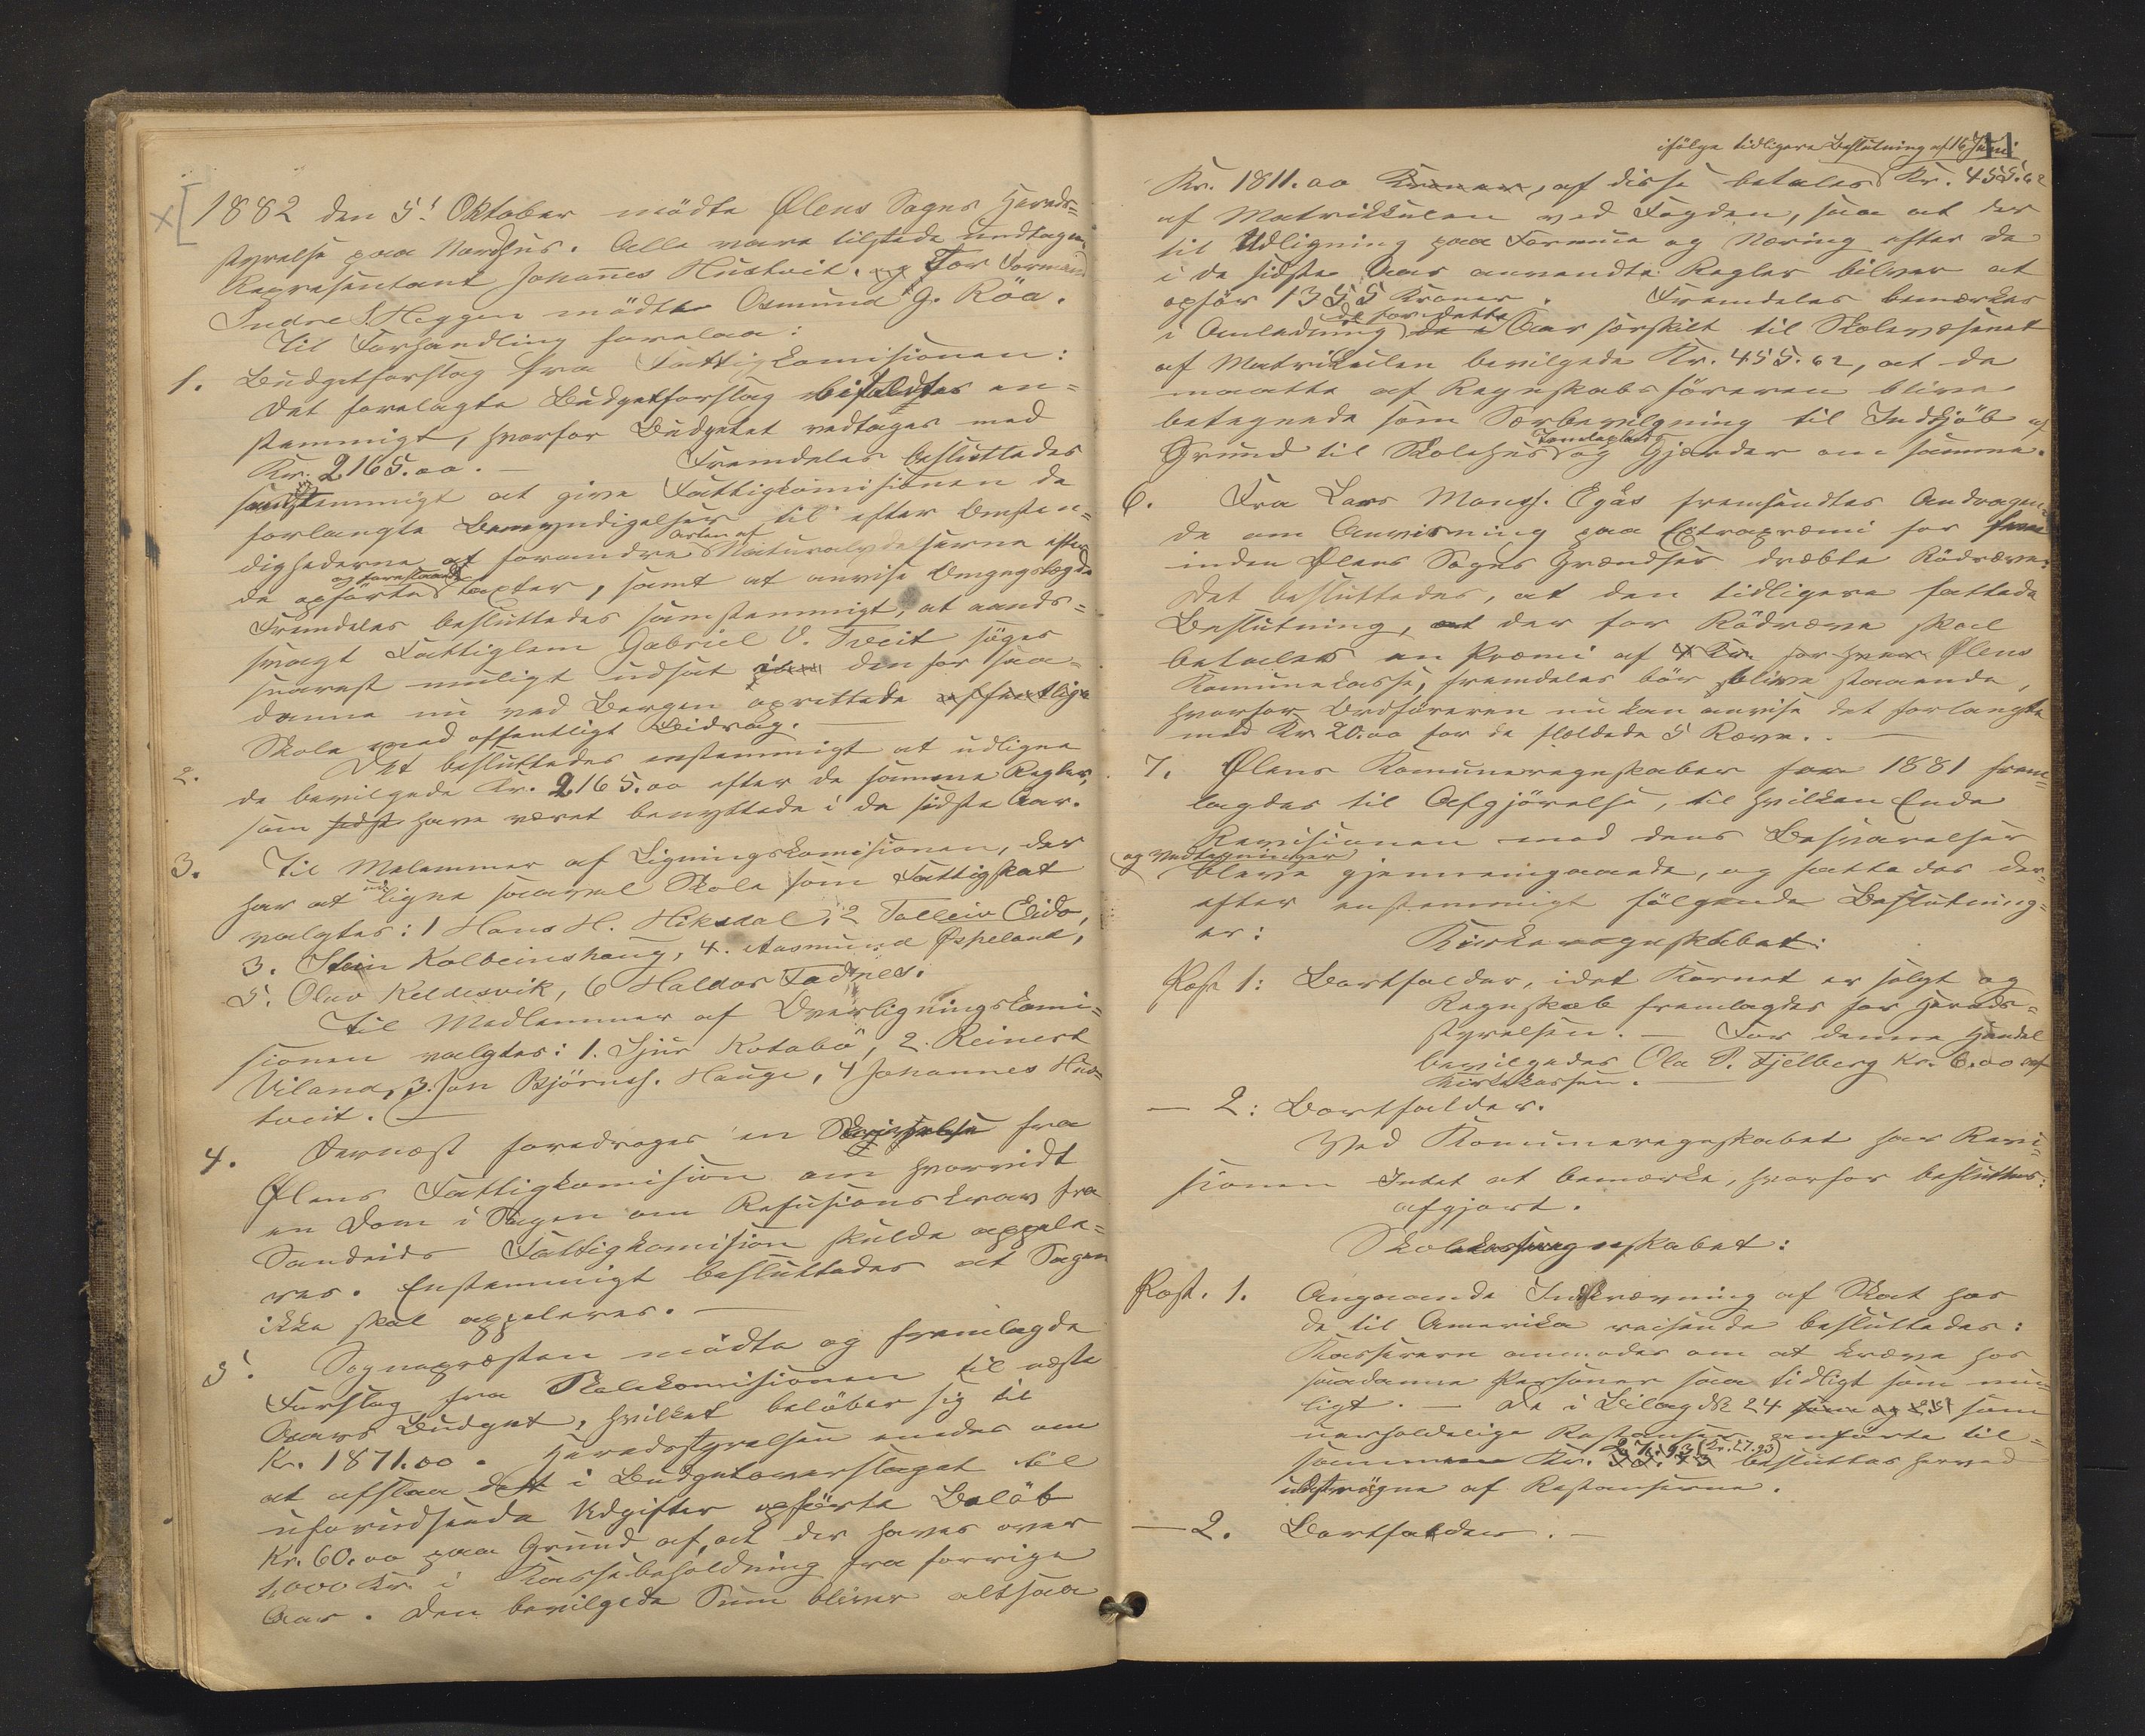 1882 den 5! Oktober mödte Ølens Sogns Hereds=
styrelse paa Nordhus. Alle vare tilstede undtagen
Representant Johañes Hustveit. og For Formand
Endre S. Heggen mödte Osmund G. Röa.
Til Forhandling forelaa:
1. Budgetforslag fra Fattigkomisionen:
Det forelagte Budgetforslag bifaldtes en=
stemmigt, hvorfor Budgetet vedtages med
Kr. 2165.00. — Fremdeles besluttedes
samstemmigt at give Fattigkomisionen de
forlangte Bemyndigelser til efter Omsten=
dighederne at forandre Arten af Naturalydelserne efter
de opförte og forestaaende Taxter, samt at anvise Omgangslægd
Fremdeles besluttedes samstemmigt, at aands=
svagt Fattiglem Gabriel V. Tveit söges
snarest muligt udsat i den for saa=
danne nu ved Bergen oprettede offentlige
Skole med offentligt Bidrag. —
2. Det besluttedes enstemmigt at udligne
de bevilgede Kr. 2165.00 efter de samme Regler,
som sidst have været benyttede i de sidste Aar.
3. Til Medlemmer af Ligningskomisionen, der
har at udligne saavel Skole som Fattigskat
valgtes: 1 Hans H. Hiksdal, 2 Tolleiv Eide,
3. Stein Kolbeinshaug, 4. Aasmund Øspeland,
5. Oluv Keldesvik, 6 Haldor Tadnes.
Til Medlemmer af Overligningskomi=
sionen valgtes: 1. Sjur Kotabö, 2. Reinert
Viland, 3. Jon Björnss. Hauge, 4 Johannes Hus=
tveit. —
4. Dernæst foredroges en Skrivelse fra
Ølens Fattigkomision om hvorvidt
en Dom i Sagen om Refusionskrav fra
Sandeids Fattigkomision skulde appele=
res. Enstemmigt besluttedes at Sagen
ikke skal appeleres. —
5. Sognepresten mödte og fremlagde
Forslag fra Skolekomisionen til næste
Aars Budget, hvilket belöber sig til
Kr. 1871.00. Heredsstyrelsen enedes om
at afslaa dett i Budgetoverslaget til
uforudseede Udgifter opförte Belöb
Kr. 60.00 paa Grund af, at der haves over
1,000 Kr. i Kassebeholdning fra forrige
Aar. Den bevilgede Sum bliver altsaa
11
ifölge tidligere Beslutning af 16 Juni
Kr. 1811.00 Kroner, af disse betales Kr. 455.62
af Matrikkulen ved Fogden, saa at der
til Udligning paa Formue og Næring efter de
i de sidste Aar anvendte Regler bliver at
opför 1355 Kroner. Fremdeles bemærkes
i Anledning de for dette Aar særskilt til Skolevæsenet
af Matrikulen bevilgede Kr. 455.62, at de
maatte af Regnskabsföreren blive
betegnede som Særbevilgning til Indkjöb af
Grund til Skolehus Tomteplads og Gjærder om samme.
6. Fra Lars Monss. Egås fremsendtes Andragen=
de om Anvisning paa Extrapræmi for fem
inden Ølens Sogns Grændser dræbte Rödræve.
Det besluttedes, at den tidligere fattede
Beslutning, at der for Rödræve skal
betales en Præmi af 4 Kr. for hver Ølens
Komunekasse, fremdeles bör blive staaende,
hvorfor Ordföreren nu kan anvise det forlangte
med Kr. 20.00 for de fældede 5 Ræve. —
7. Ølens Komuneregnskaber for 1881 frem=
lagdes til Afgjörelse, til hvilken Ende
Revisionen med dens Besvarelser
og Vedtegninger bleve gjennemgaaede, og fattedes der=
efter enstemmigt fölgende Beslutning=
er:
Kirkeregnskabet:
Post 1: Bortfalder, idet Kornet er solgt og
Regnskab fremlagdes for Hereds=
styrelsen. — For denne Handel
bevilgedes Ola P. Fjelberg Kr. 6.00 af
Kirkekassen. —
— 2: Bortfalder.
Ved Komuneregnskabet har Revi=
sionen Intet at bemærke, hvorfor besluttes:
afgjort.
Skolekasseregnskabet:
Post. 1. Angaaende Indkrævning af Skat hos
de til Amerika reisende besluttedes:
Kassereren anmodes om at kræve hos
saadanne Personer saa tidligt som mu=
ligt. — De i Bilag No 24 som
uerholdelige Restanser anförte til=
sammen Kr. (Kr. 27.93) besluttes herved
udströgne af Restanserne.
— 2. Bortfalder. —